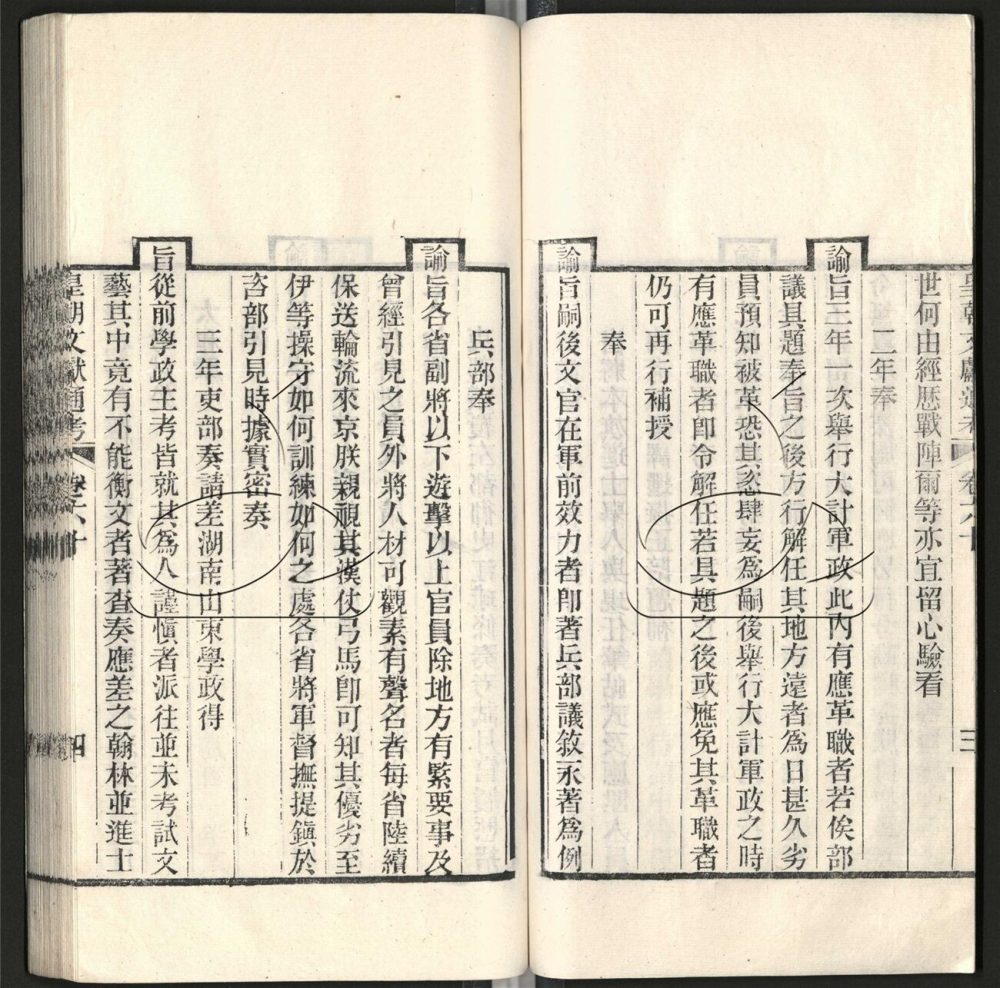 皇朝文獻通考 卷六十 三
世何由經歷戰陣爾等亦宜留心驗看
二年奉
諭旨三年一次舉行大計軍政此內有應革職者若俟部
議具題奉旨之後方行解任其地方遠者為日甚久劣
員預知被革恐其恣肆妄為嗣後舉行大計軍政之時
有應革職者卽令解任若具題之後或應免其革職者
仍可再行補授
奉
諭旨嗣後文官在軍前效力者卽著兵部議敘永著為例
兵部奉
諭旨各省副將以下遊擊以上官員除地方有緊要事及
曾經引見之員外將人材可觀素有聲名者每省陸續
保送輪流來京朕親視其漢仗弓馬卽可知其優劣至
伊等操守如何訓練如何之處各省將軍督撫提鎮於
咨部引見時據實密奏
三年吏部奏請差湖南山東學政得
旨從前學政主考皆就其為人謹慎者派往並未考試文
藝其中竟有不能衡文者著查奏應差之翰林並進士
皇朝文獻通考 卷六十 四